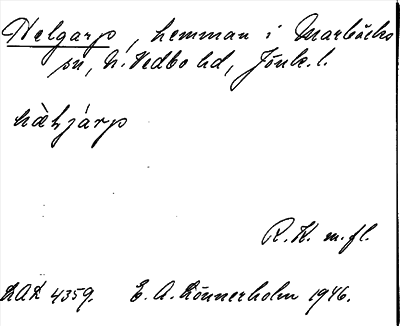 Helgarp, hemman i Marbäcks
sn, N. Vedbo hd, Jönk. l.
hàljárp
R. K. m. fl.
4359. E. A. Rönnerholm 1946.